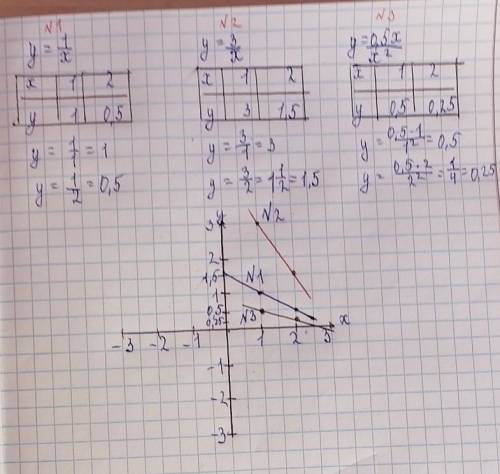 N1
y = 1/x
x 1 2
y 1 0,5
y = 1/1 = 1
y = 1/2 = 0,5
N2
y = 3/x
x 1 2
y 3 1,5
y = 3/1 = 3
y = 3/2 = 1 1/2 = 1,5
N3
y = 0,5x/x²
x 1 2
y 0,5 0,25
y = 0,5·1/1² = 0,5
y = 0,5·2/2² = 1/4 = 0,25
y
3
N2
2
1,5
N1
1
0,5
N3
0,25
x
-3 -2 -1 1 2 3
-1
-2
-3